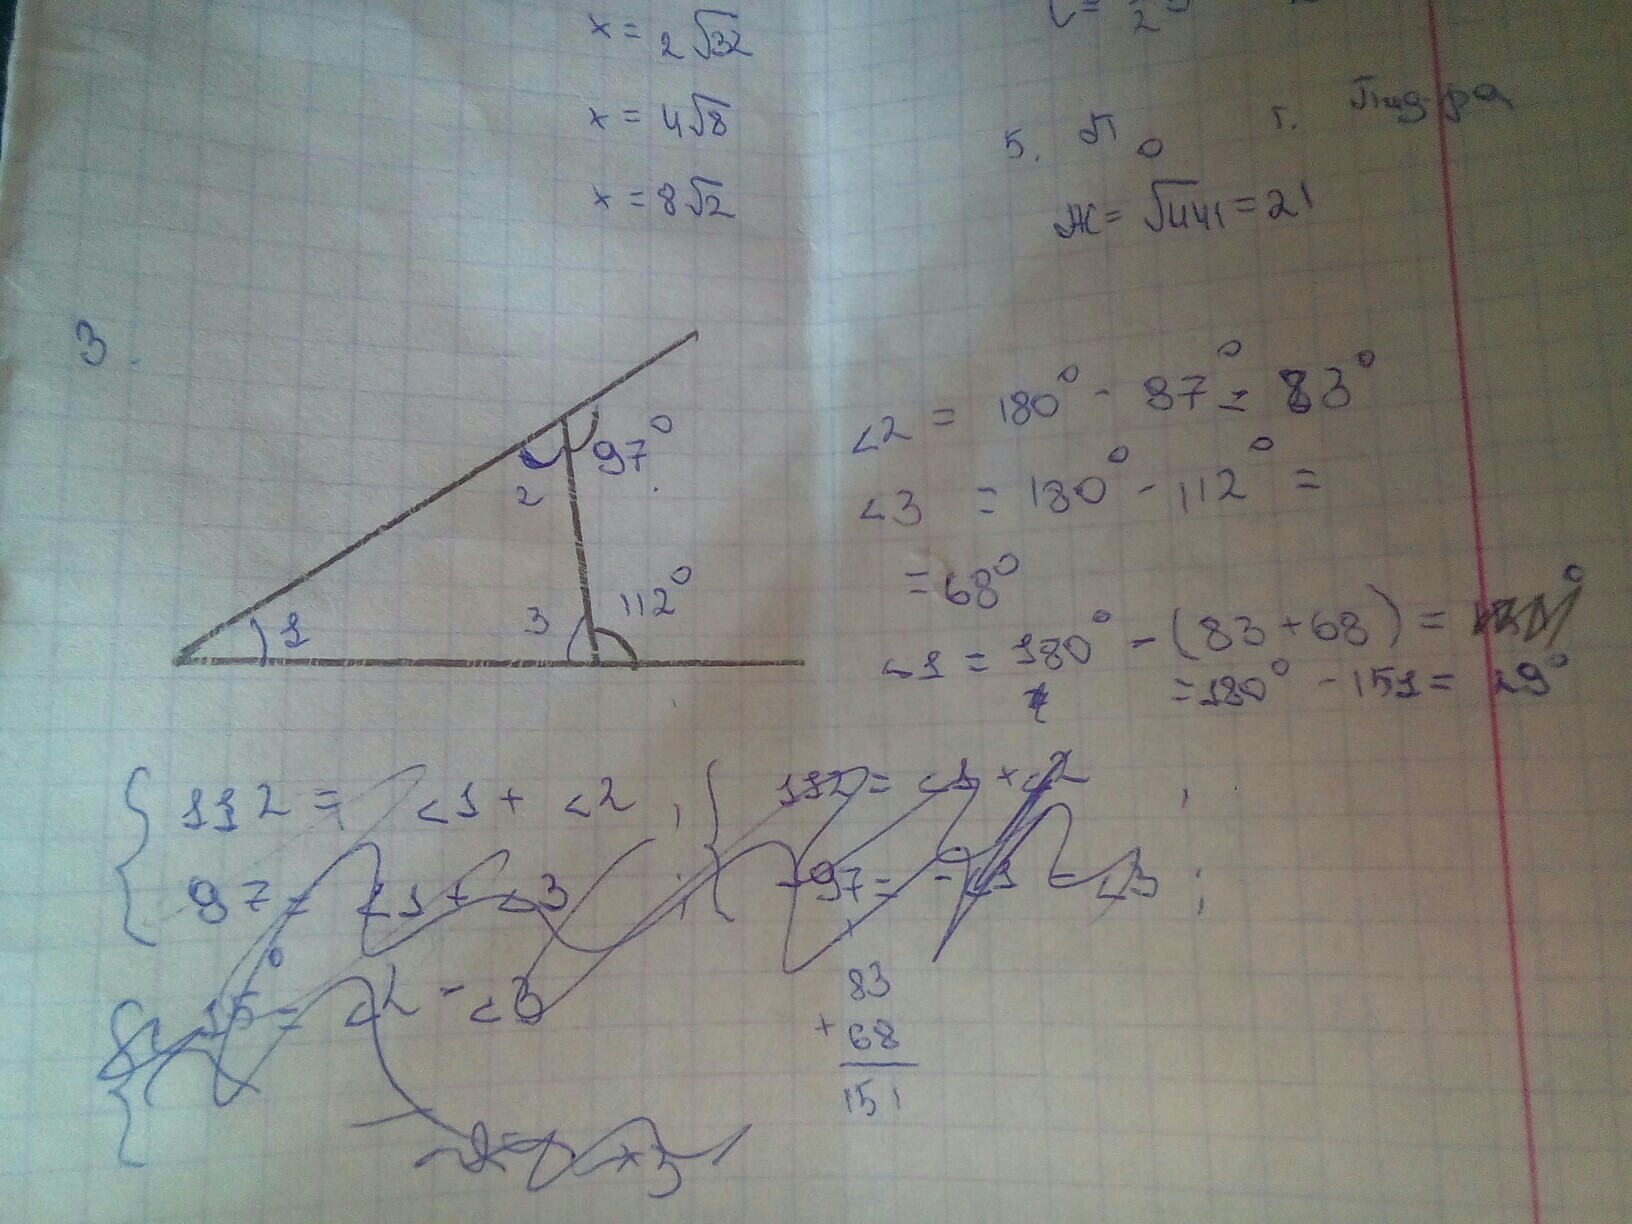 x = 2√32
x = 4√8
x = 8√2
5. П о г.
Ж = √441 = 21
3.
97°
2
112°
3
1
∠2 = 180° - 97° = 83°
∠3 = 180° - 112° =
= 68°
∠1 = 180° - (83 + 68) =
= 180° - 151 = 29°
112 = ∠1 + ∠2 ;
97 = ∠1 + ∠3 ;
112 = ∠1 + ∠2 ;
-97 = -∠1 - ∠3 ;
15° = ∠2 - ∠3
83
+ 68
151